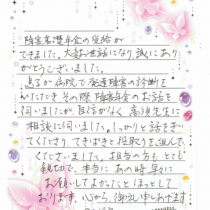 障害基礎年金の受給が
できました。大変お世話になり、誠にあり
がとうございました。
息子が病院で発達障害の診断を
いただき その際 障害年金のお話を
伺いましたが、自信がなく 高須先生に
相談に伺いました。しっかりと話をきい
てくださり、てきぱきと段取りを組んで
くださいました。担当の方も とても
親切で、本当に あの時 早々に
お願いしてよかったと ほっとして
おります。心から、御礼申しあげます